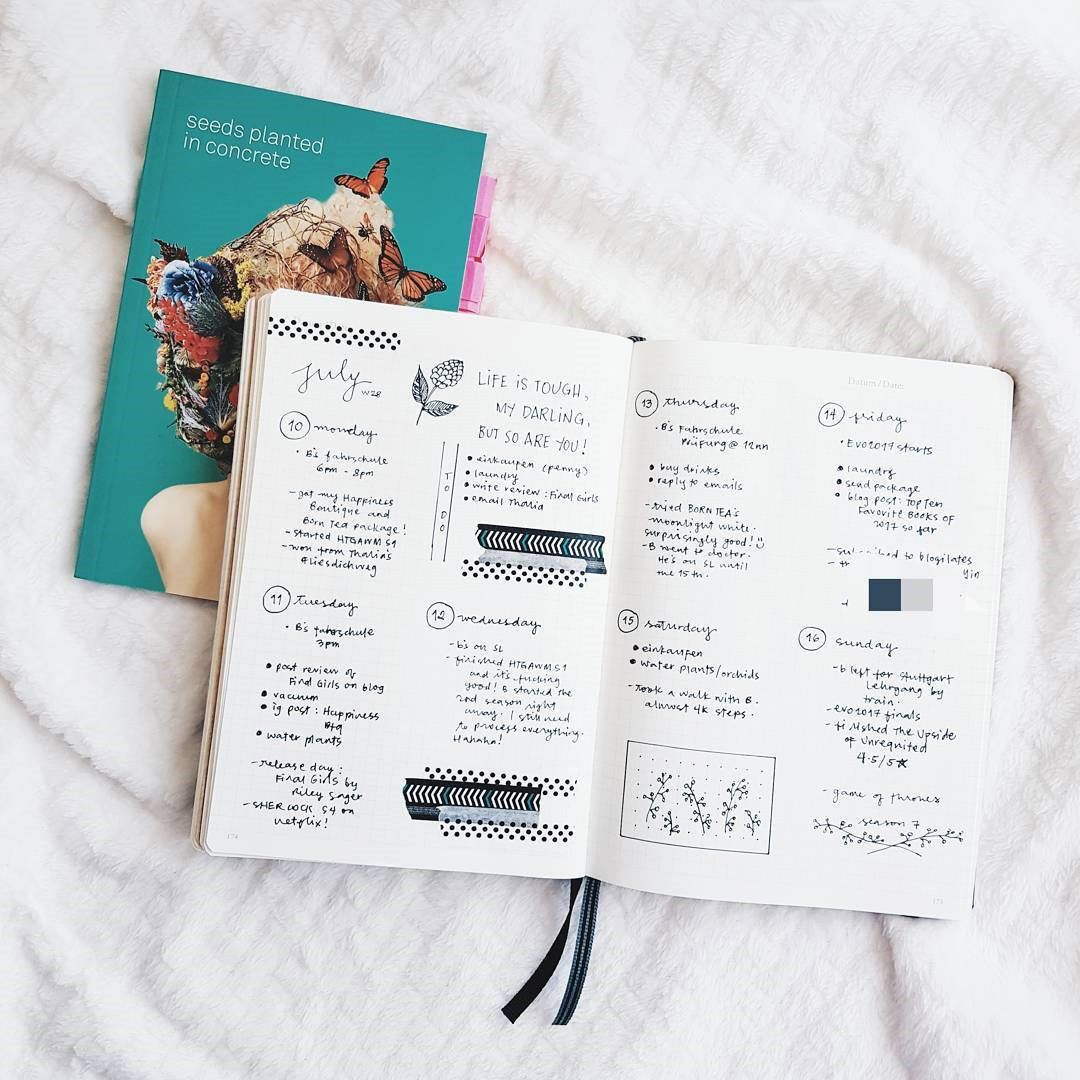 seeds planted
in concrete
july
W28
LIFE IS TOUGH,
MY DARLING,
BUT SO ARE YOU!
10 monday
• B's fahrschule
6pm - 8pm
- got my Happiness
Boutique and
Born Tea package!
- started HTGAWM S1
- won from Thalia's
#liesdichweg
TO DO
• einkaufen (penny)
• laundry
• write review: Final Girls
• email Thalia
11 Tuesday
• B's fahrschule
3pm
• post review of
Final Girls on blog
• vacuum
• ig post: Happiness
Btq
• water plants
- release day:
Final Girls by
Riley Sager
- SHERLOCK S4 on
netflix!
174
12 wednesday
- b's on SL
- finished HTGAWM S1
and it's fucking
good! B started the
2nd season right
away. I still need
to process everything.
Hahaha!
13 thursday
• B's Fahrschule
Prüfung @ 12nn
• buy drinks
• reply to emails
- tried BORN TEA's
moonlight white.
surprisingly good! :)
- B went to doctor.
He's on SL until
the 15th.
Datum / Date:
14 friday
• Evo2017 starts
• laundry
• send package
• blog post: Top Ten
Favorite Books of
2017 so far
to blogilates
15 saturday
• einkaufen
• water plants/orchids
- Took a walk with B.
almost 4k steps.
16 sunday
- b left for Stuttgart
Lehrgang by
train.
- evo2017 finals
- finished The Upside
of Unrequited
4.5/5☆
- game of thrones
season 7